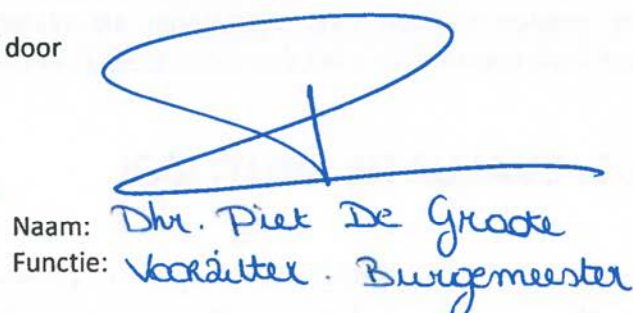 door
Naam: Dhr. Piet De Groote
Functie: Voorzitter. Burgemeester